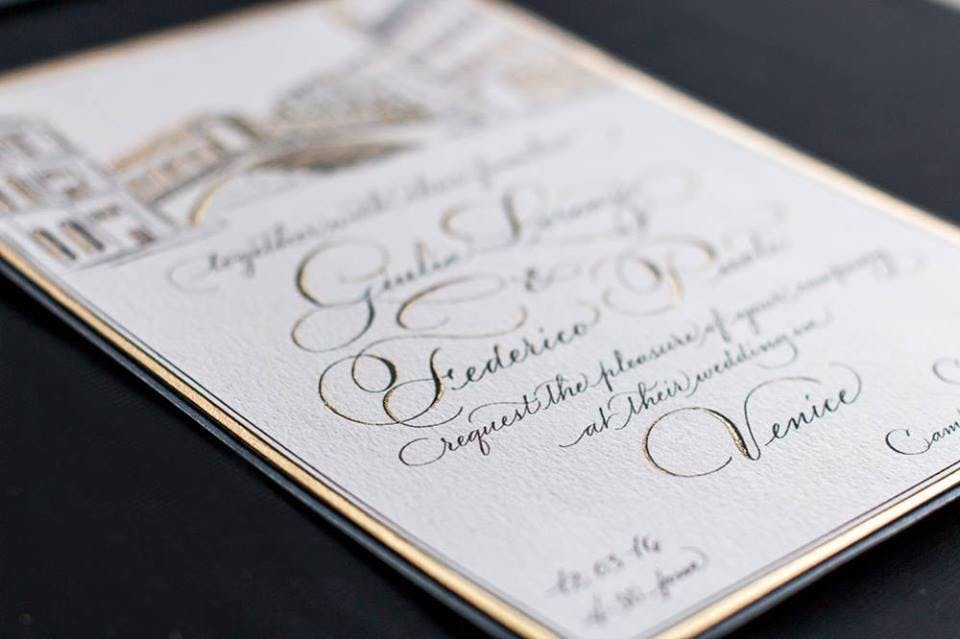 together with their families
Giulia
&
Federico
request the pleasure of your company
at their wedding in
Venice
12.03.16
4.30